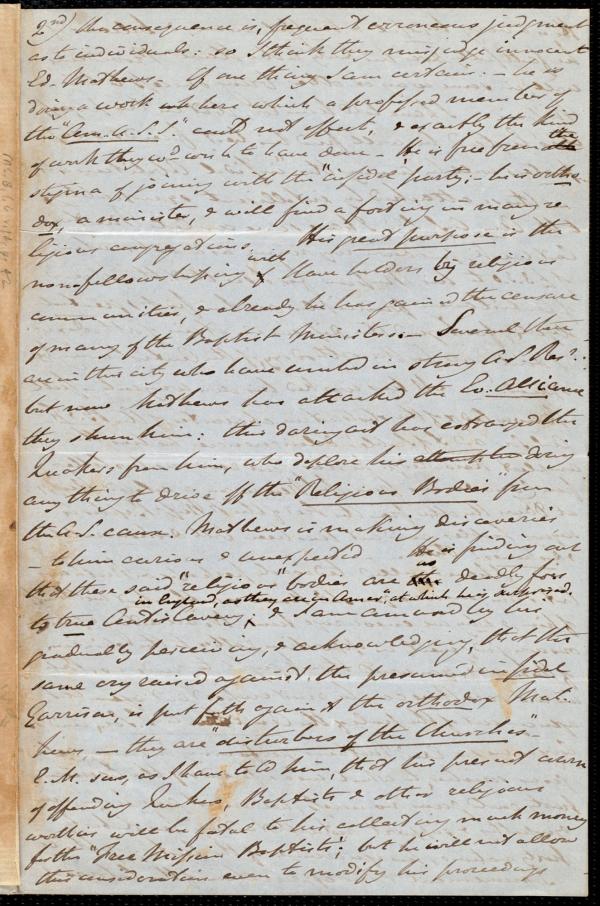 2nd The consequence is, frequent erroneous judgment
as to individuals: so I think they misjudge innocent
Ed. Mathews - Of one thing I am certain: - he is
doing a work here which a professed member of
the "Am. A. S. S." could not effect, & exactly the kind
of work they wd. wish to have done - He is free from the
stigma of joining with the "infidel party; - he is ortho
dox, a minister, & will find a footing in many re
ligious congregations. His great purpose is the
non-fellowshipping with Slave holders by religious
communities, & already he has gained the censure
of many of the Baptist Ministers - Several there
are in this city who have united in strong A. S. Res:
but now Mathews has attacked the Ev. Alliance
they shun him: this daring act has estranged the
Quakers from him, who deplore his doing
anything to drive off the "Religious Bodies" from
the A. S. cause. Mathews is making discoveries
- to him curious & unexpected He is finding out
that these said "religious" bodies are as deadly foes
in England, as they are in America, at which he is surprised.
to true Anti slavery, & I am amused by his
gradually perceiving, & acknowledging, that the
same cry raised against the presumed infidel
Garrison, is put forth against the orthodox Mat
hews, - they are "disturbers of the Churches" -
E. M. says, as I have told him, that his present course
of offending Quakers, Baptists & other religious
worthies will be fatal to his collecting much money
for the "Free Mission Baptists"; but he will not allow
this consideration even to modify his proceedings